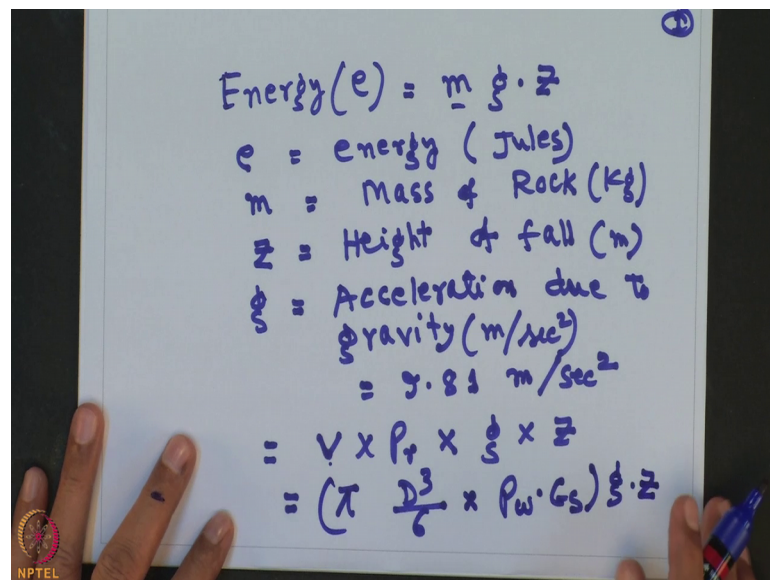 ②
Energy (e) = m g · Z
e = energy (Jules)
m = Mass of Rock (Kg)
Z = Height of fall (m)
g = Acceleration due to
gravity (m/sec²)
= 9.81 m/sec²
= V × Pr × g × Z
= (π D³/6 × Pw · Gs) g · Z
NPTEL